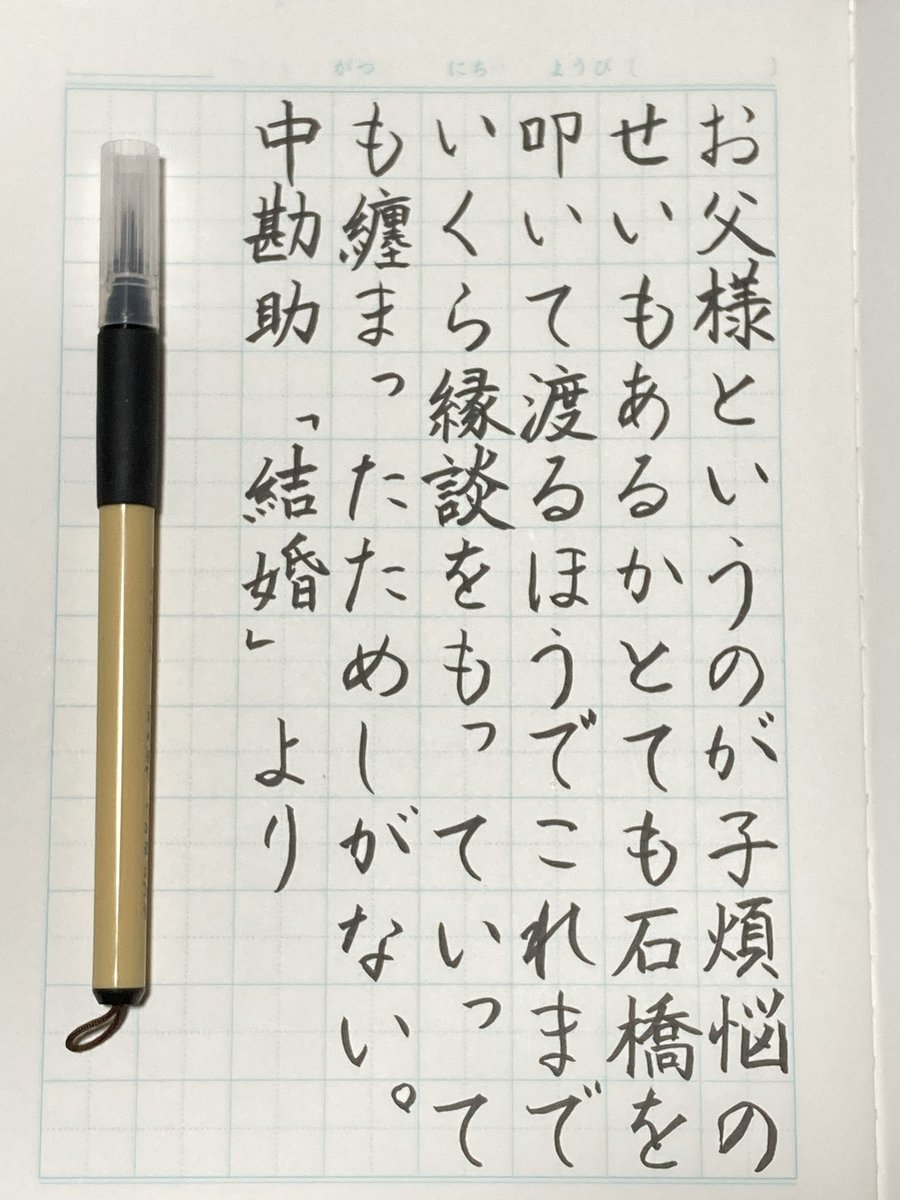 がつ にち ようび( )
お父様というのが子煩悩の
せいもあるかとても石橋を
叩いて渡るほうでこれまで
いくら縁談をもっていって
も纏まったためしがない。
中勘助「結婚」より